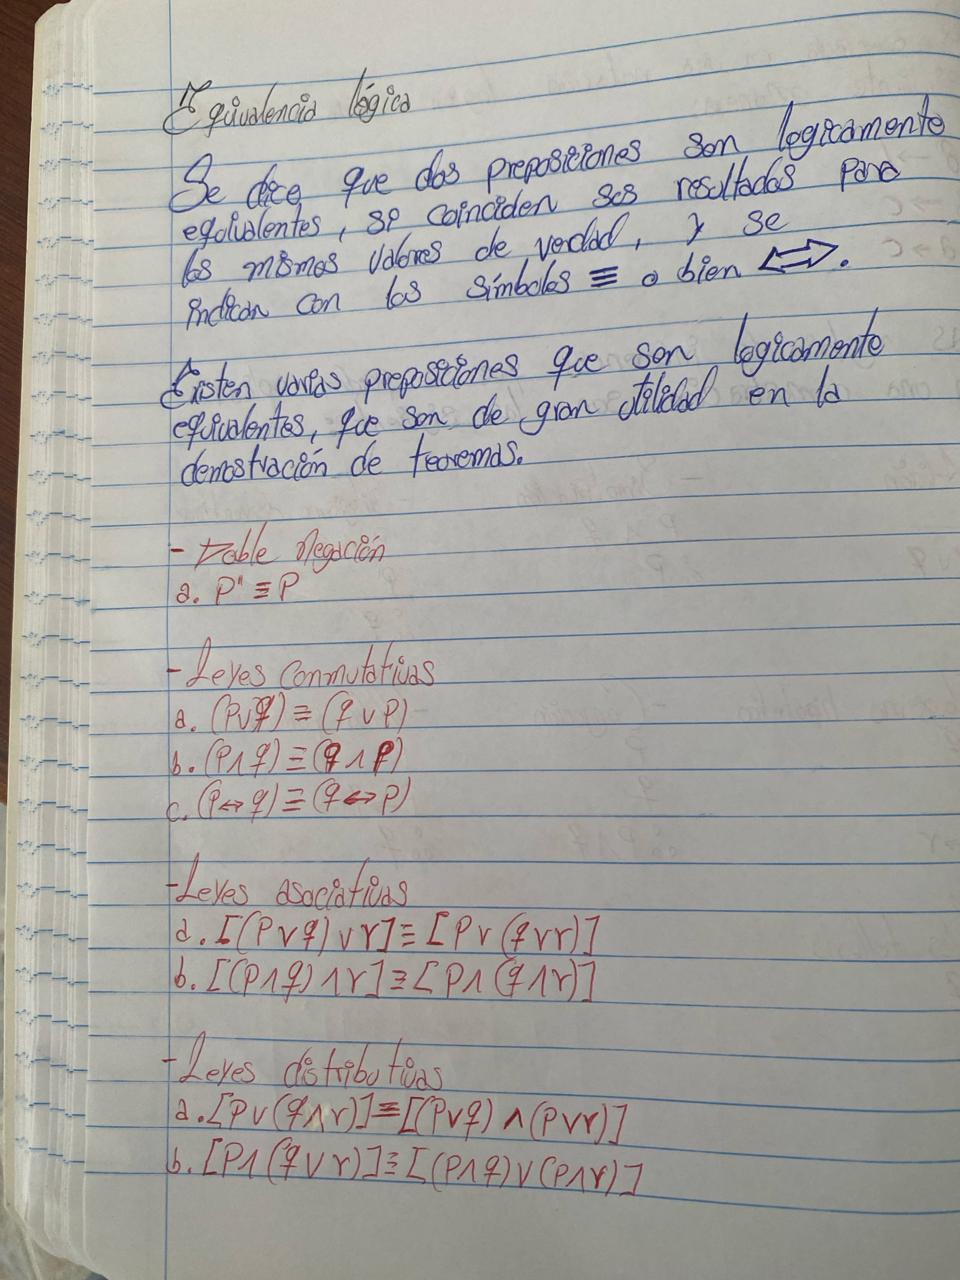 Equivalencia lógica
Se dice que dos preposiciones son logicamente
equivalentes, si coinciden sus resultados para
los mismos valores de verdad, y se
indican con los símbolos ≡ o bien ⟺.
Existen varias preposiciones que son logicamente
equivalentes, que son de gran utilidad en la
demostración de teoremas.
- Doble Negación
a. p'' ≡ p
- Leyes conmutativas
a. (p∨q) ≡ (q∨p)
b. (p∧q) ≡ (q∧p)
c. (p↔q) ≡ (q↔p)
- Leyes asociativas
a. [(p∨q)∨r] ≡ [p∨(q∨r)]
b. [(p∧q)∧r] ≡ [p∧(q∧r)]
- Leyes distributivas
a. [p∨(q∧r)] ≡ [(p∨q)∧(p∨r)]
b. [p∧(q∨r)] ≡ [(p∧q)∨(p∧r)]